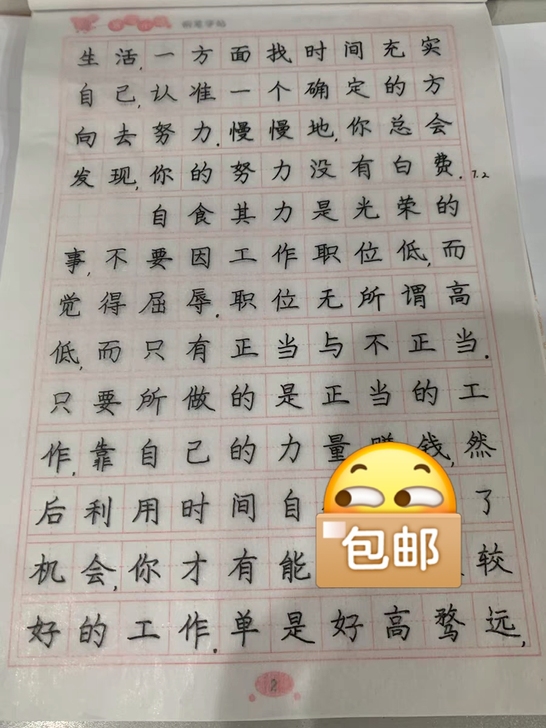 钢笔字帖
生活,一方面找时间充实
自己,认准一个确定的方
向去努力.慢慢地,你总会
发现,你的努力没有白费. 7.2
自食其力是光荣的
事,不要因工作职位低,而
觉得屈辱.职位无所谓高
低,而只有正当与不正当.
只要所做的是正当的工
作,靠自己的力量赚钱,然
后利用时间自 了
机会,你才有能 较
好的工作.单是好高骛远,
包邮
2